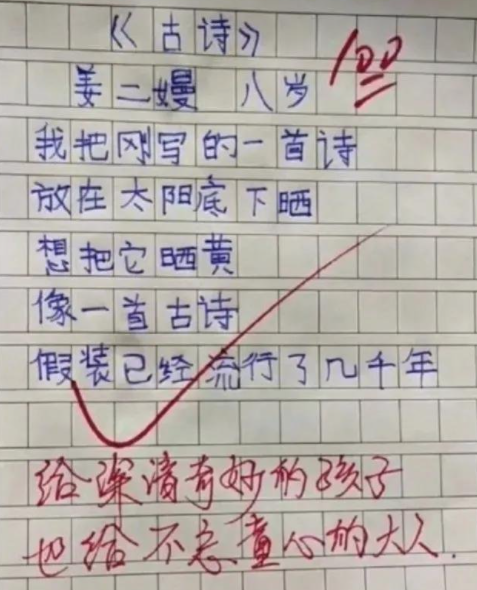 《古诗》
100
姜二嫚 八岁
我把刚写的一首诗
放在太阳底下晒
想把它晒黄
像一首古诗
假装已经流行了几千年
给深情有好的孩子
也给不忘童心的大人.